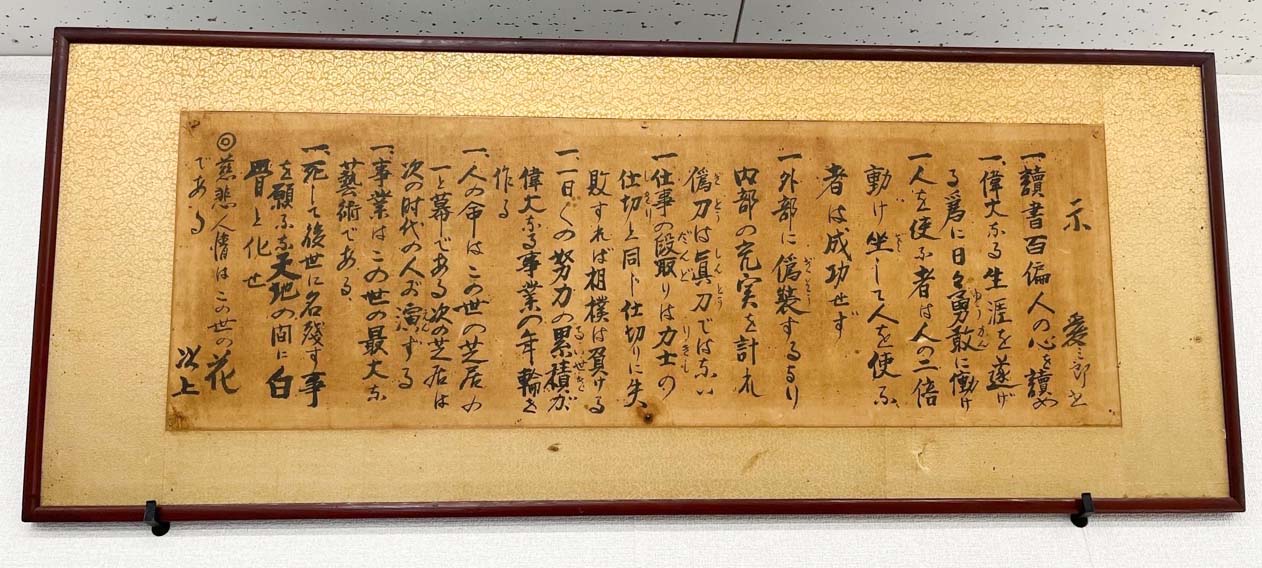 示 愛三郎書
一、讀書百偏人の心を讀め
一、偉大なる生涯を遂げ
る爲に日々勇敢に働け
一人を使ふ者は人の二倍
動け坐して人を使ふ
者は成功せず
一外部に偽装するより
内部の充実を計れ
偽刀は眞刀ではない
一仕事の段取りは力士の
仕切と同ト仕切りに失
敗すれば相撲は負ける
一、一日々の努力の累積が
偉大なる事業の年輪を
作る
一、人の命はこの世の芝居の
一と幕である次の芝居は
次の時代の人が演ずる
一、事業はこの世の最大な
藝術である
一、死して後世に名残す事
を願ふな天地の間に白
骨と化せ
◎慈悲人情はこの世の花
である
以上